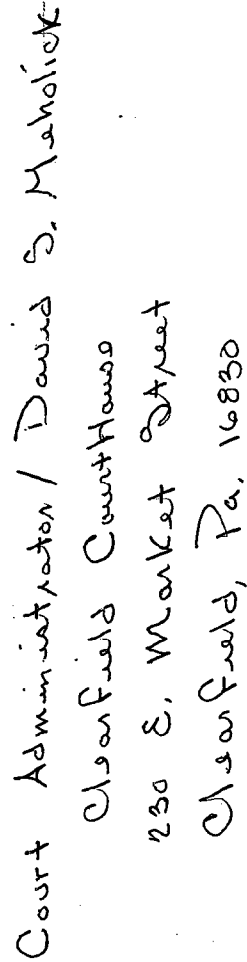 Court Administrator / David S. Meholick
Clearfield CourtHouse
230 E. Market Street
Clearfield, Pa. 16830